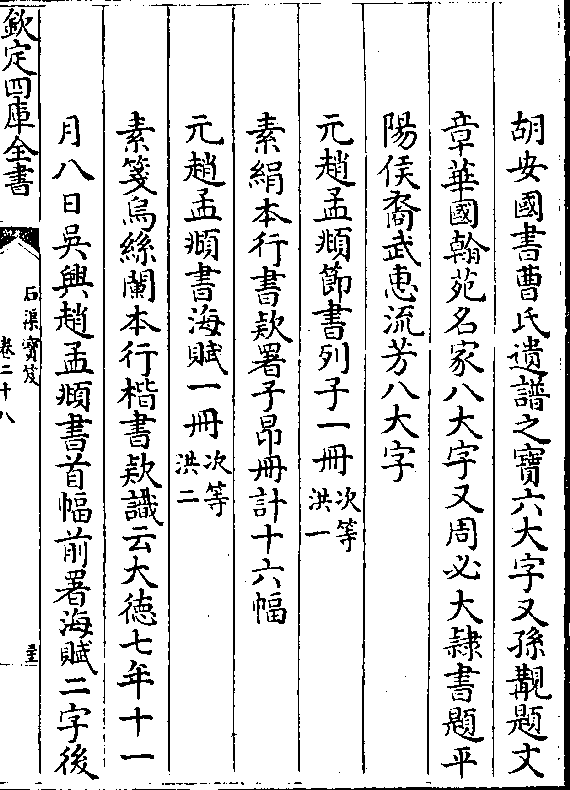 胡安國書曹氏遺譜之寶六大字又孫覿題文
章華國翰苑名家八大字又周必大隷書題平
陽侯裔武惠流芳八大字
元趙孟頫節書列子一冊次等洪一
素絹本行書款署子昂冊計十六幅
元趙孟頫書海賦一冊次等洪二
素箋烏絲闌本行楷書款識云大徳七年十一
月八日吳興趙孟頫書首幅前署海賦二字後
欽定四庫全書
石渠寳笈
卷二十八